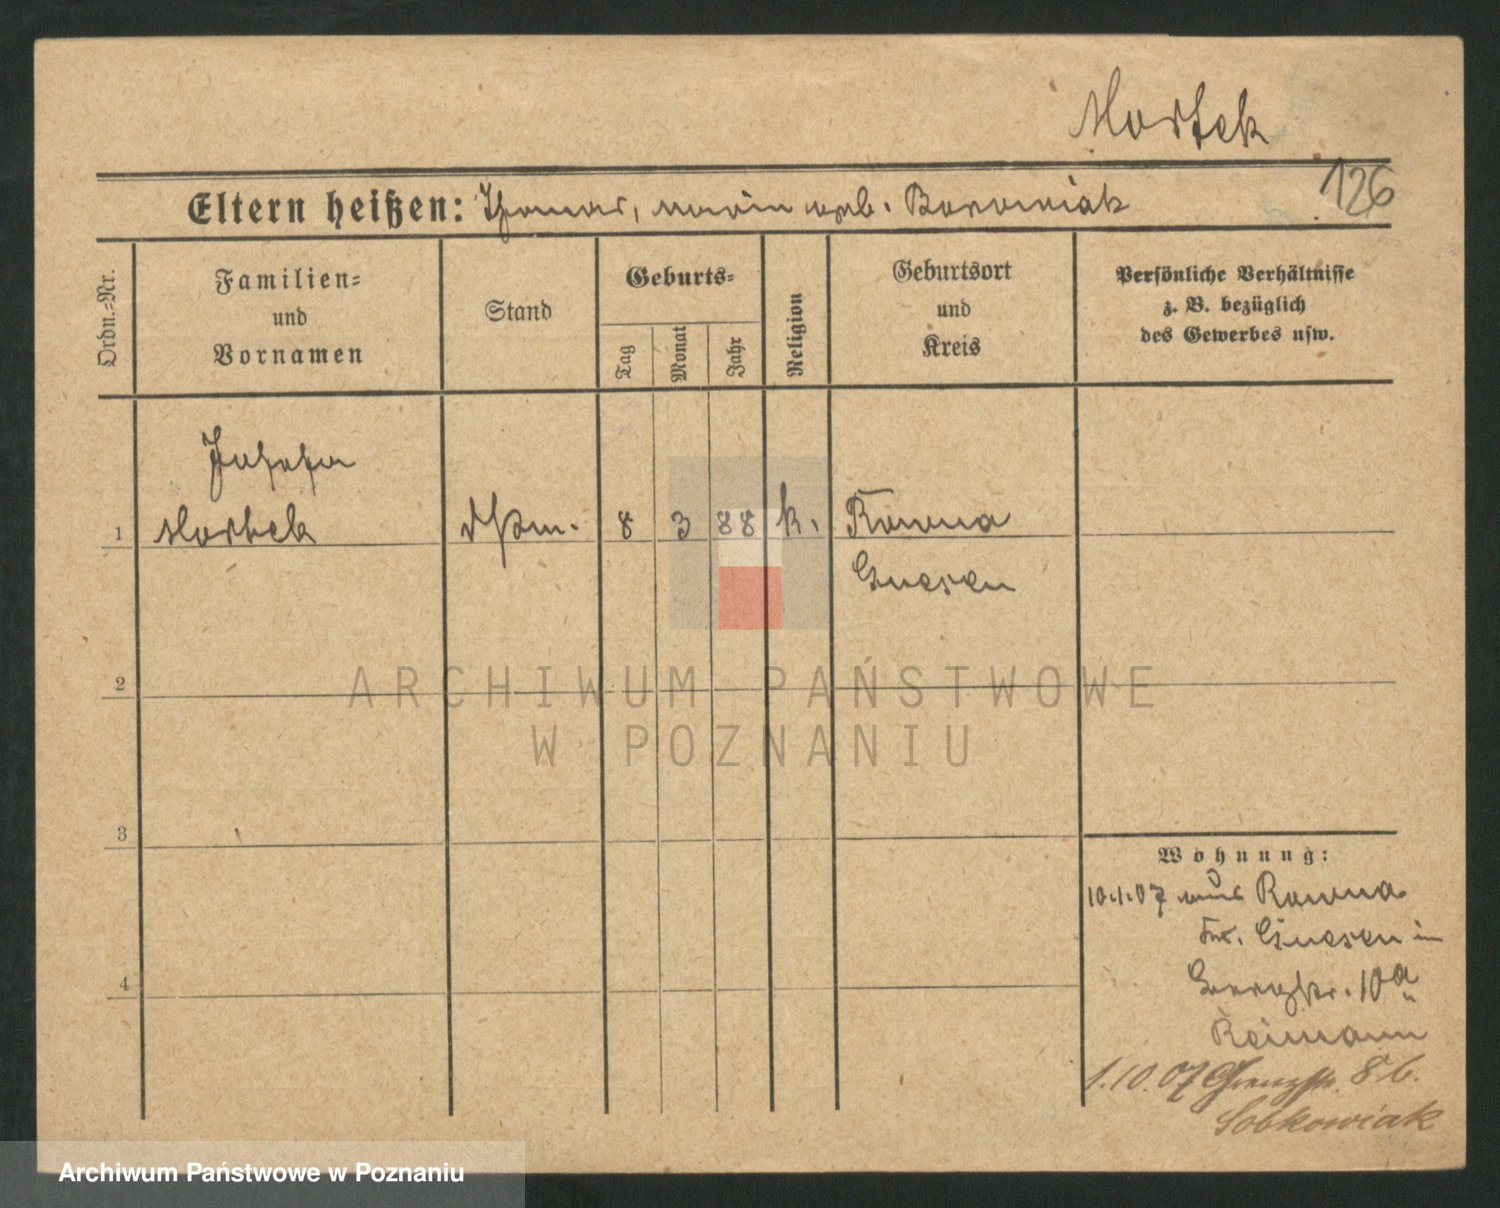 Mortek
126
Eltern heißen: Thomas, Marie geb. Borowiak
Ordn.=Nr.
Familien=
und
Vornamen
Stand
Geburts=
Tag
Monat
Jahr
Religion
Geburtsort
und
Kreis
Persönliche Verhältnisse
z. B. bezüglich
des Gewerbes usw.
Josefa
1 Mortek 8 3 88 k. Rowna
Gnesen
2
3
4
Wohnung:
10.1.07 aus Rowna
Kr. Gnesen in
10a
Reimann
1.10.07 Grenzstr. 8b.
Sobkowiak
ARCHIWUM PAŃSTWOWE
W POZNANIU
Archiwum Państwowe w Poznaniu